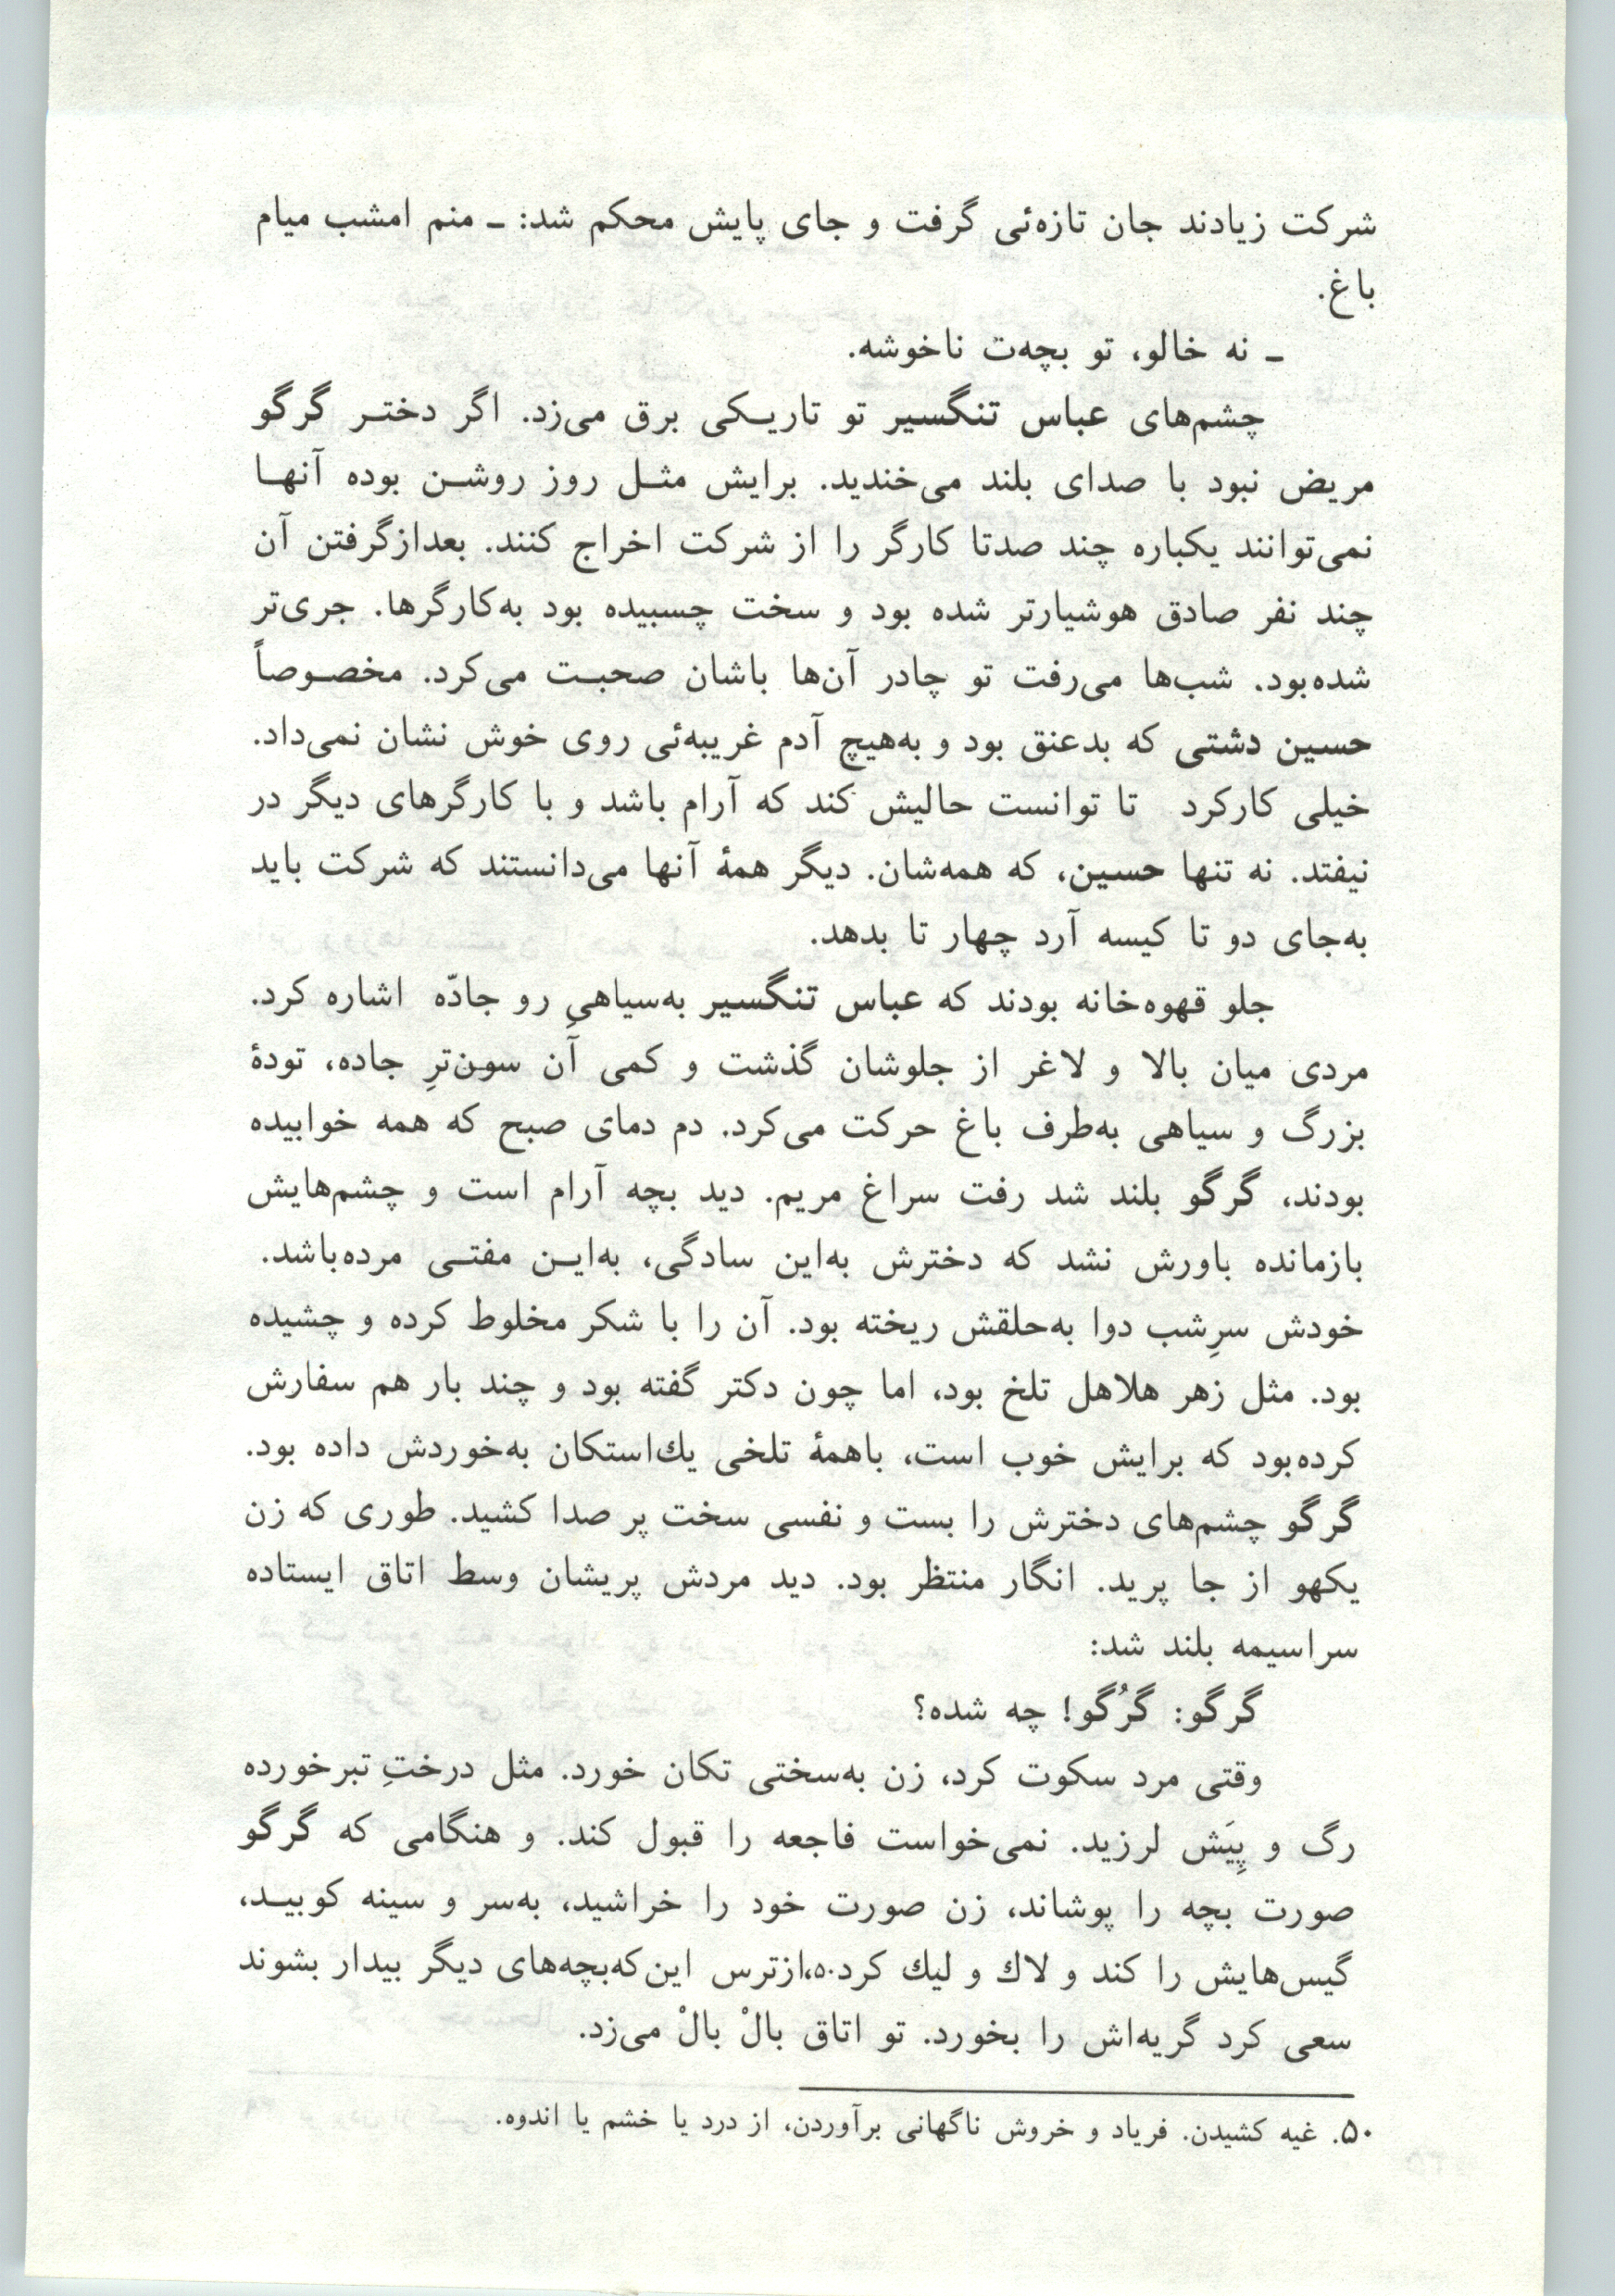 شرکت زیادند جان تازه‌ئی گرفت و جای پایش محکم شد: ـ منم امشب میام
باغ.
ـ نه خالو، تو بچه‌ت ناخوشه.
چشم‌های عباس تنگسیر تو تاریـکی برق می‌زد. اگر دختـر گرگو
مریض نبود با صدای بلند می‌خندید. برایش مثـل روز روشـن بوده آنهـا
نمی‌توانند یکباره چند صدتا کارگر را از شرکت اخراج کنند. بعدازگرفتن آن
چند نفر صادق هوشیارتر شده بود و سخت چسبیده بود به‌کارگرها. جری‌تر
شده‌بود. شب‌ها می‌رفت تو چادر آن‌ها باشان صحبـت می‌کرد. مخصـوصاً
حسین دشتی که بدعنق بود و به‌هیچ آدم غریبه‌ئی روی خوش نشان نمی‌داد.
خیلی کارکرد تا توانست حالیش کند که آرام باشد و با کارگرهای دیگر در
نیفتد. نه تنها حسین، که همه‌شان. دیگر همهٔ آنها می‌دانستند که شرکت باید
به‌جای دو تا کیسه آرد چهار تا بدهد.
جلو قهوه‌خانه بودند که عباس تنگسیر به‌سیاهیِ رو جادّه اشاره کرد.
مردی میان بالا و لاغر از جلوشان گذشت و کمی آن سون‌ترِ جاده، تودهٔ
بزرگ و سیاهی به‌طرف باغ حرکت می‌کرد. دم دمای صبح که همه خوابیده
بودند، گرگو بلند شد رفت سراغ مریم. دید بچه آرام است و چشم‌هایش
بازمانده باورش نشد که دخترش به‌این سادگی، به‌ایـن مفتـی مرده‌باشد.
خودش سرِشب دوا به‌حلقش ریخته بود. آن را با شکر مخلوط کرده و چشیده
بود. مثل زهر هلاهل تلخ بود، اما چون دکتر گفته بود و چند بار هم سفارش
کرده‌بود که برایش خوب است، باهمهٔ تلخی یك‌استکان به‌خوردش داده بود.
گرگو چشم‌های دخترش را بست و نفسی سخت پر صدا کشید. طوری که زن
یکهو از جا پرید. انگار منتظر بود. دید مردش پریشان وسط اتاق ایستاده
سراسیمه بلند شد:
گرگو: گرُگو! چه شده؟
وقتی مرد سکوت کرد، زن به‌سختی تکان خورد. مثل درختِ تبرخورده
رگ و پِیَش لرزید. نمی‌خواست فاجعه را قبول کند. و هنگامی که گرگو
صورت بچه را پوشاند، زن صورت خود را خراشید، به‌سر و سینه کوبیـد،
گیس‌هایش را کند و لاك و لیك کرد۵۰،ازترس این‌که‌بچه‌های دیگر بیدار بشوند
سعی کرد گریه‌اش را بخورد. تو اتاق بالْ بالْ می‌زد.
۵۰. غیه کشیدن. فریاد و خروش ناگهانی برآوردن، از درد یا خشم یا اندوه.